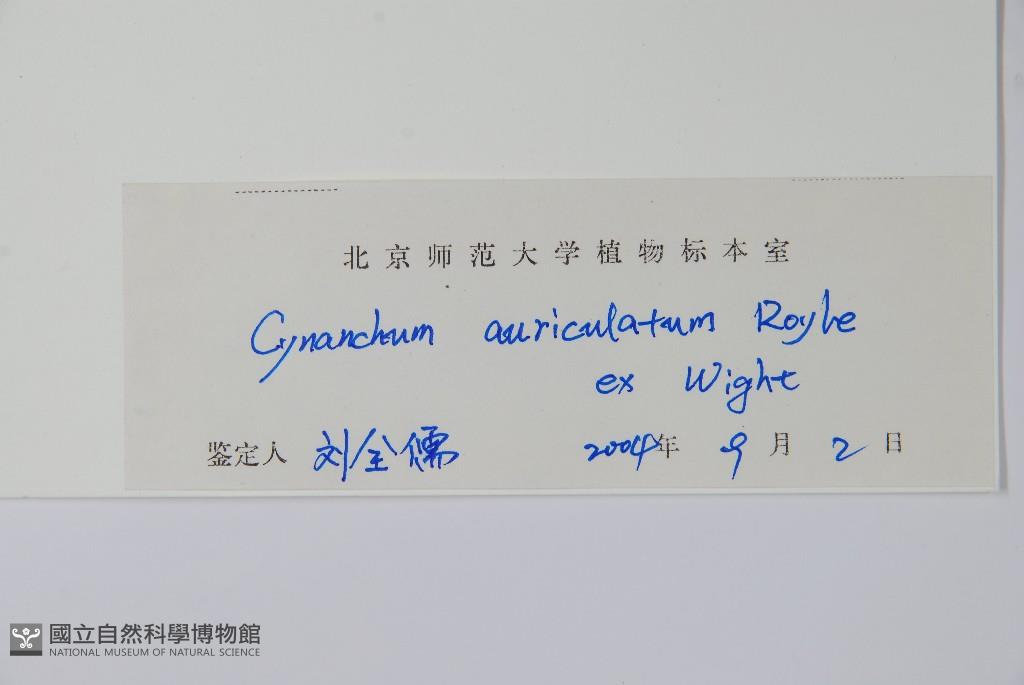 北京师范大学植物标本室
Cynanchum auriculatum Royle
ex Wight
鉴定人 刘全儒 2004年 9月 2日
國立自然科學博物館
NATIONAL MUSEUM OF NATURAL SCIENCE